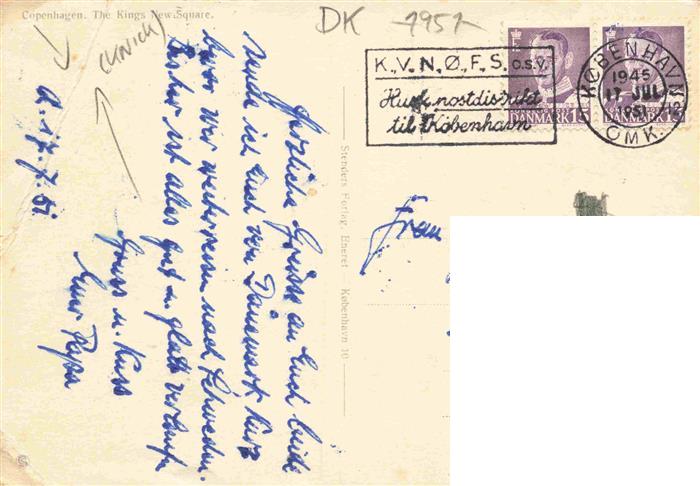 Copenhagen. The Kings New Square.
DK 1951
(ULRICH)
K.V.N.Ø.F.S. o.s.v.
Husk postdistrikt
til København
KØBENHAVN
OMK.
1945
17 JUL
1951
DANMARK 15
DANMARK 15
Stenders Forlag, Eneret København 10
Herzliche Grüsse an Euch beide
sende ich Euch von Dänemark kurz
bevor wir weiterreisen nach Schweden.
Bisher ist alles gut u. glatt verlaufen
Gruss u. Kuss
Euer Papa
17.7.51
Frau